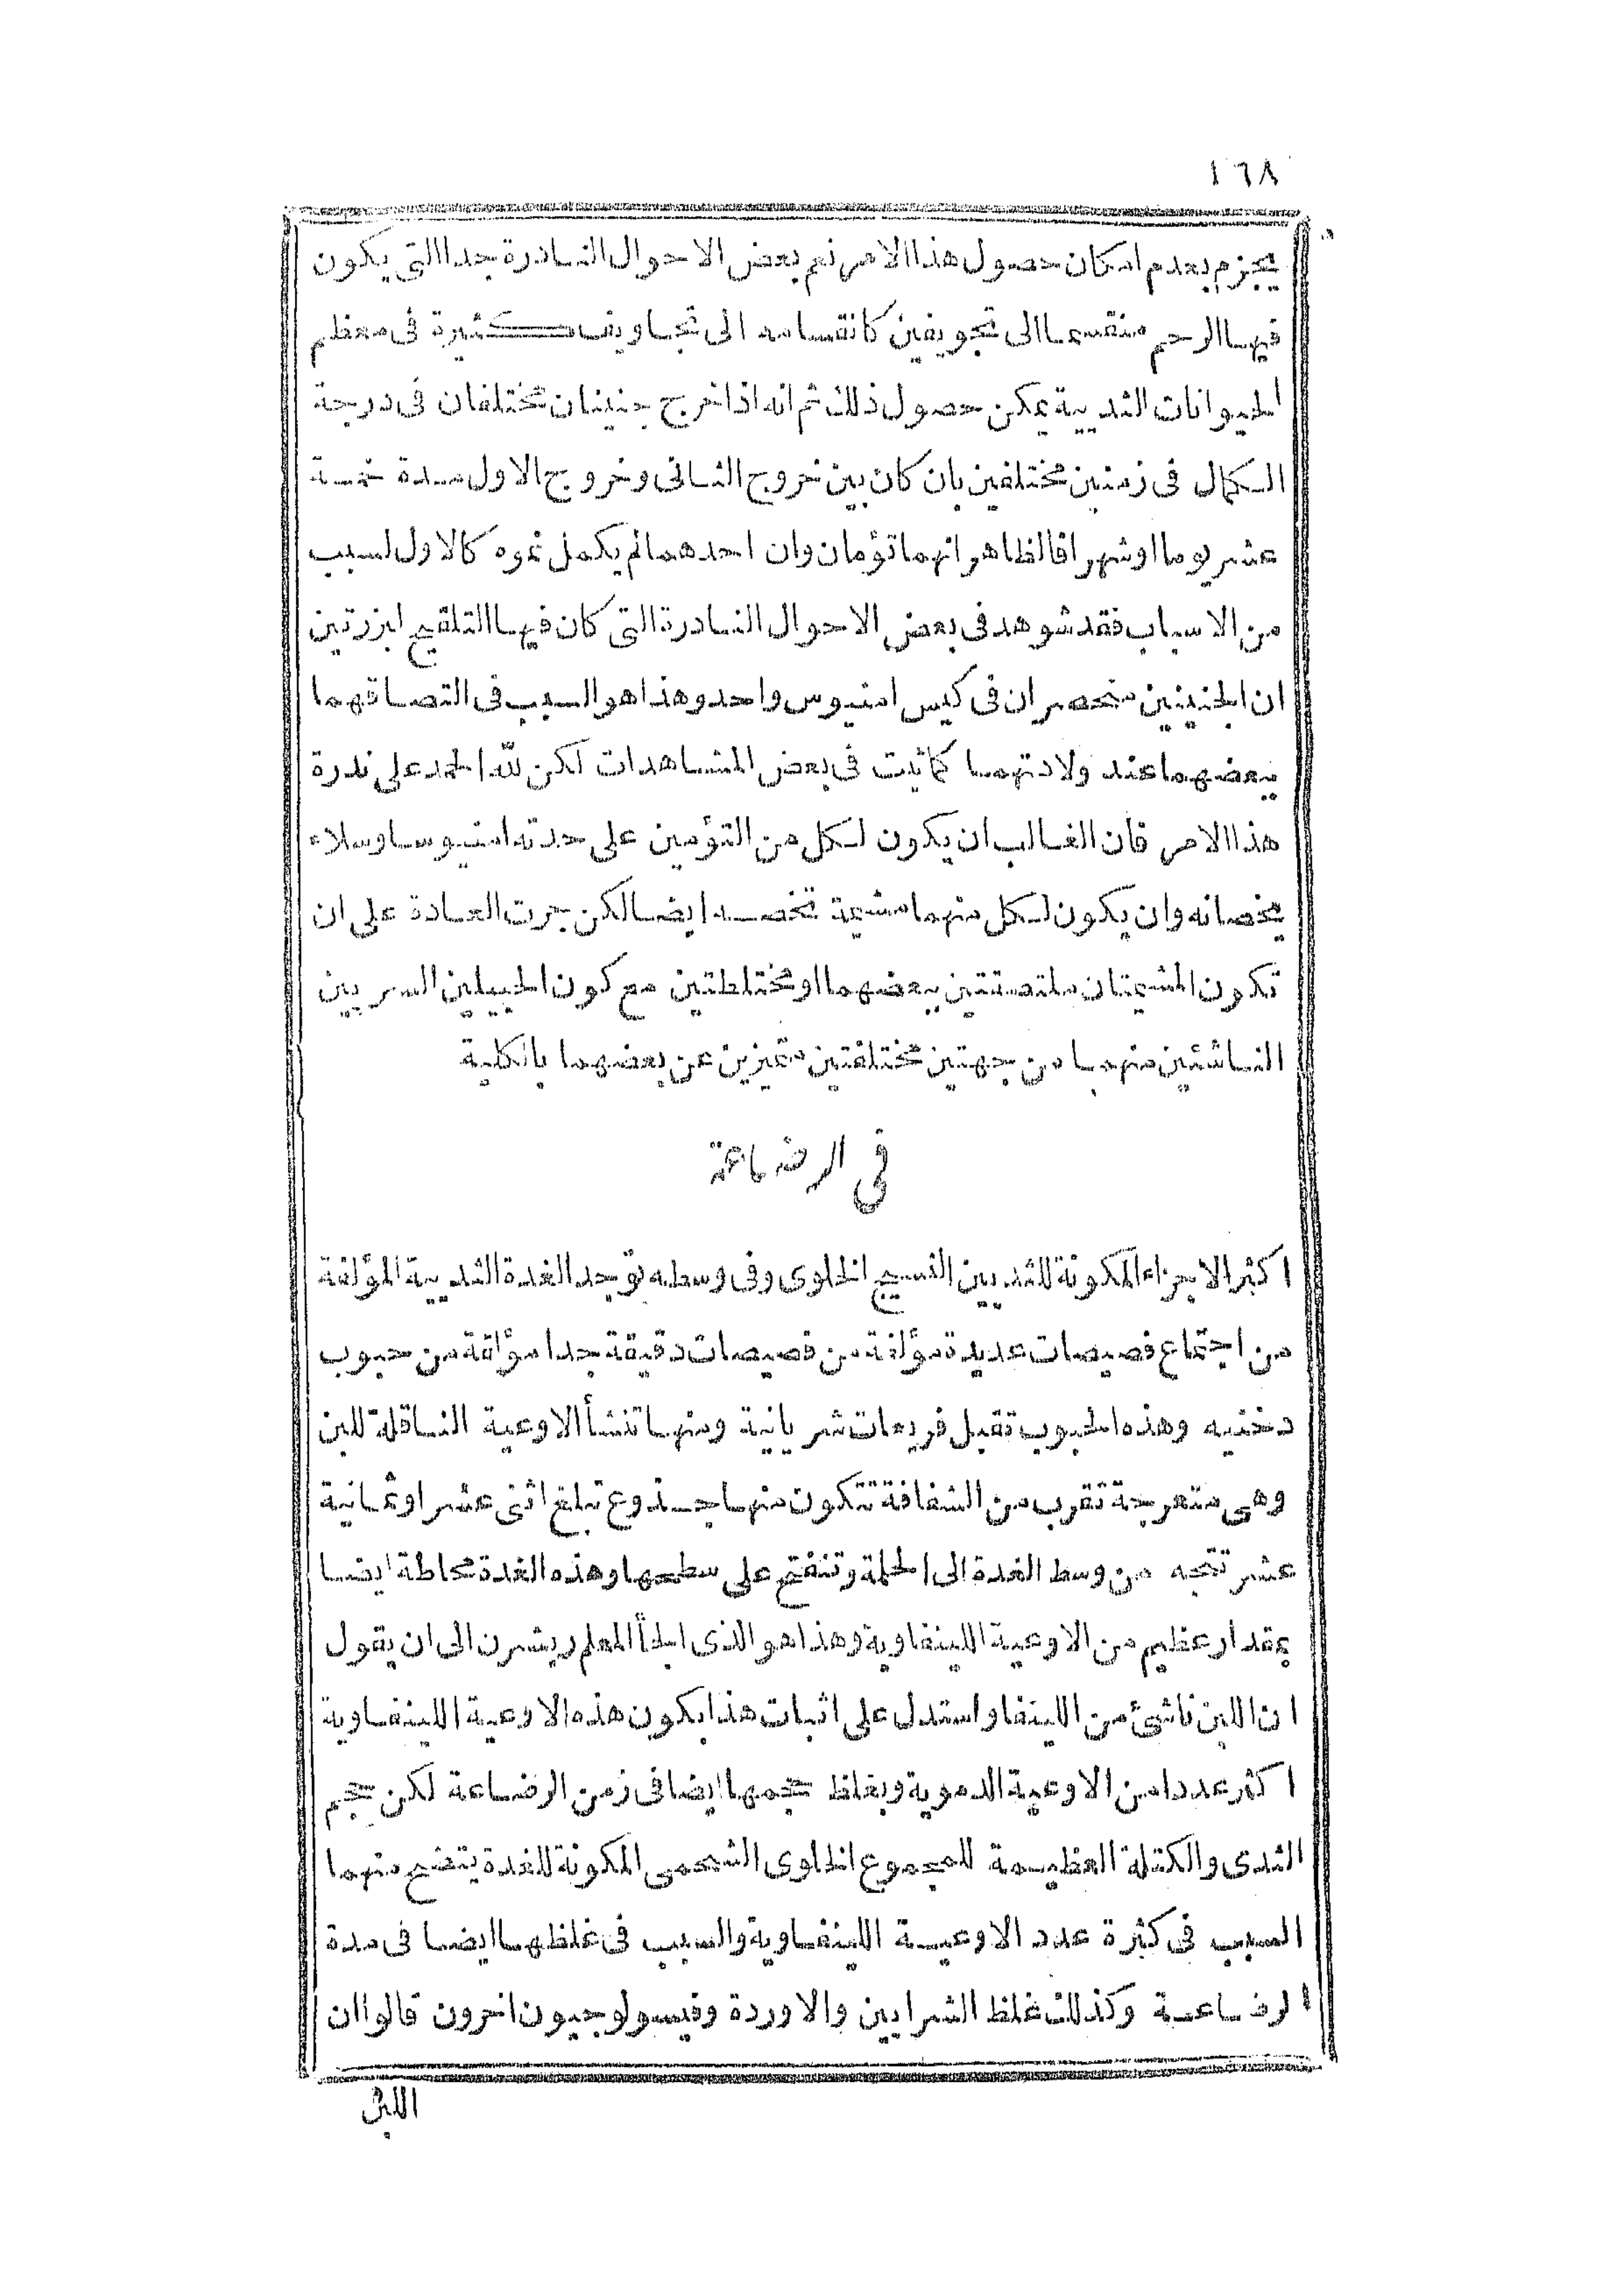 ١٦٨
يجزم بعدم امكان حصول هذا الامر نعم بعض الاحوال النادرة جدا التى يكون
فيها الرحم منقسما الى تجويفين كانقسامه الى تجاويف كثيرة فى معظم
الحيوانات الثديية يمكن حصول ذلك ثم انه اذا خرج جنينان مختلفان فى درجة
الكمال فى زمنين مختلفين بان كان بين خروج الثانى وخروج الاول مدة خمسة
عشر يوما او شهرا فالظاهر انهما تؤمان وان احدهما لم يكمل نموه كالاول لسبب
من الاسباب فقد شوهد فى بعض الاحوال النادرة التى كان فيها التلقيح لبزرتين
ان الجنينين منحصران فى كيس امنيوس واحد وهذا هو السبب فى التصاقهما
ببعضهما عند ولادتهما كما ثبت فى بعض المشاهدات لكن لله الحمد على ندرة
هذا الامر فان الغالب ان يكون لكل من التؤمين على حدته امنيوسا وسلاء
يخصانه وان يكون لكل منهما مشيمة تخصه ايضا لكن جرت العادة على ان
تكون المشيمتان ملتصقتين ببعضهما او مختلطتين مع كون الحبيلين السريين
الناشئين منهما من جهتين مختلفتين متميزين عن بعضهما بالكلية
فى الرضاعة
اكثر الاجزاء المكونة للثديين النسيج الخلوى وفى وسطه توجد الغدة الثديية المؤلفة
من اجتماع فصيصات عديدة مؤلفة من فصيصات دقيقة جدا مؤلفة من حبوب
دخنيه وهذه الحبوب تقبل فريعات شريانية ومنها تنشأ الاوعية الناقلة للبن
وهى متعرجة تقرب من الشفافة تتكون منها جذوع تبلغ اثنى عشر او ثمانية
عشر تتجه من وسط الغدة الى الحلمة وتنفتح على سطحها وهذه الغدة محاطة ايضا
بمقدار عظيم من الاوعية اللينفاوية وهذا هو الذى الجأ المعلم ريشرن الى ان يقول
ان اللبن ناشئ من اللينفا واستدل على اثبات هذا بكون هذه الاوعية اللينفاوية
اكثر عددا من الاوعية الدموية وبغلظ حجمها ايضا فى زمن الرضاعة لكن حجم
الثدى والكتلة العظيمة للمجموع الخلوى الشحمى المكونة للغدة يتضح منهما
السبب فى كثرة عدد الاوعية اللينفاوية والسبب فى غلظها ايضا فى مدة
الرضاعة وكذلك غلظ الشرايين والاوردة وفيسولوجيون اخرون قالوا ان
اللبن